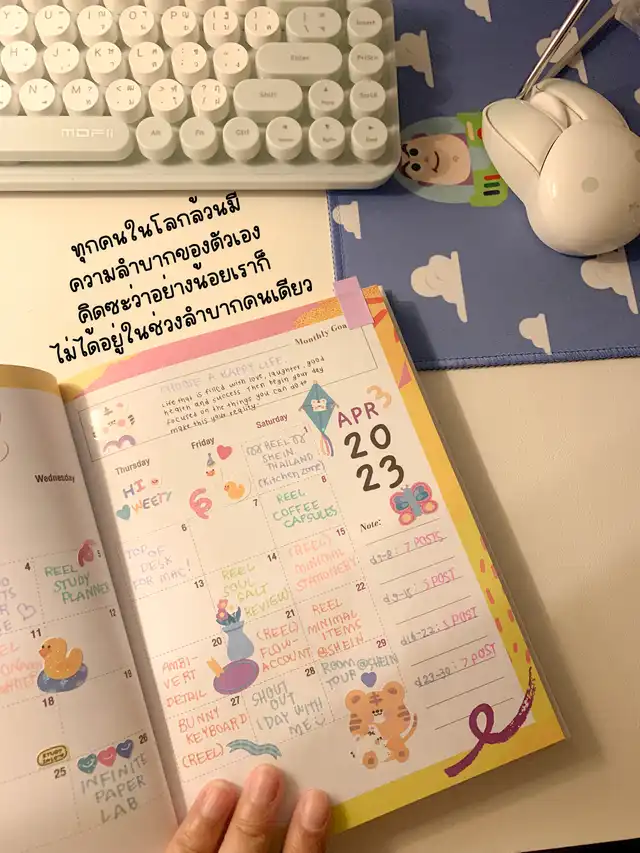 Insert
Enter
Shift
MOFII
Alt
Fn
Ctrl
ทุกคนในโลกล้วนมี
ความลำบากของตัวเอง
คิดซะว่าอย่างน้อยเราก็
ไม่ได้อยู่ในช่วงลำบากคนเดียว
Monthly Goa
CHOOSE A HAPPY LIFE
Life that is filled with love, laughter, good
health and success. Then begin your day
focused on the things you can do to
make this your reality.
APR 3
20
23
Wednesday
Thursday
Friday
Saturday
HI
SWEETY
1
REEL
SHEIN
THAILAND
(Kitchen Zone)
4
REEL
STUDY
PLANNER
5
6
TOP OF
DESK
FOR MAC!
7
8
REEL
COFFEE
CAPSULES
11
12
13
14
REEL
SOUL
SALT
REVIEW
15
(REEL)
MINIMAL
STATIONERY
18
19
20
AMBI-
VERT
DETAIL
21
(REEL)
FLOW
ACCOUNT
22
REEL
MINIMAL
ITEMS
@SHEIN
25
26
INFINITE
PAPER
LAB
27
BUNNY
KEYBOARD
(REEL)
28
SHOUT
OUT
1 DAY WITH
ME
29
ROOM
TOUR @SHEIN
Note:
d1-8 : 7 POSTS
d9-15 : 5 POST
d16-22 : 5 POST
d23-30 : 7 POST